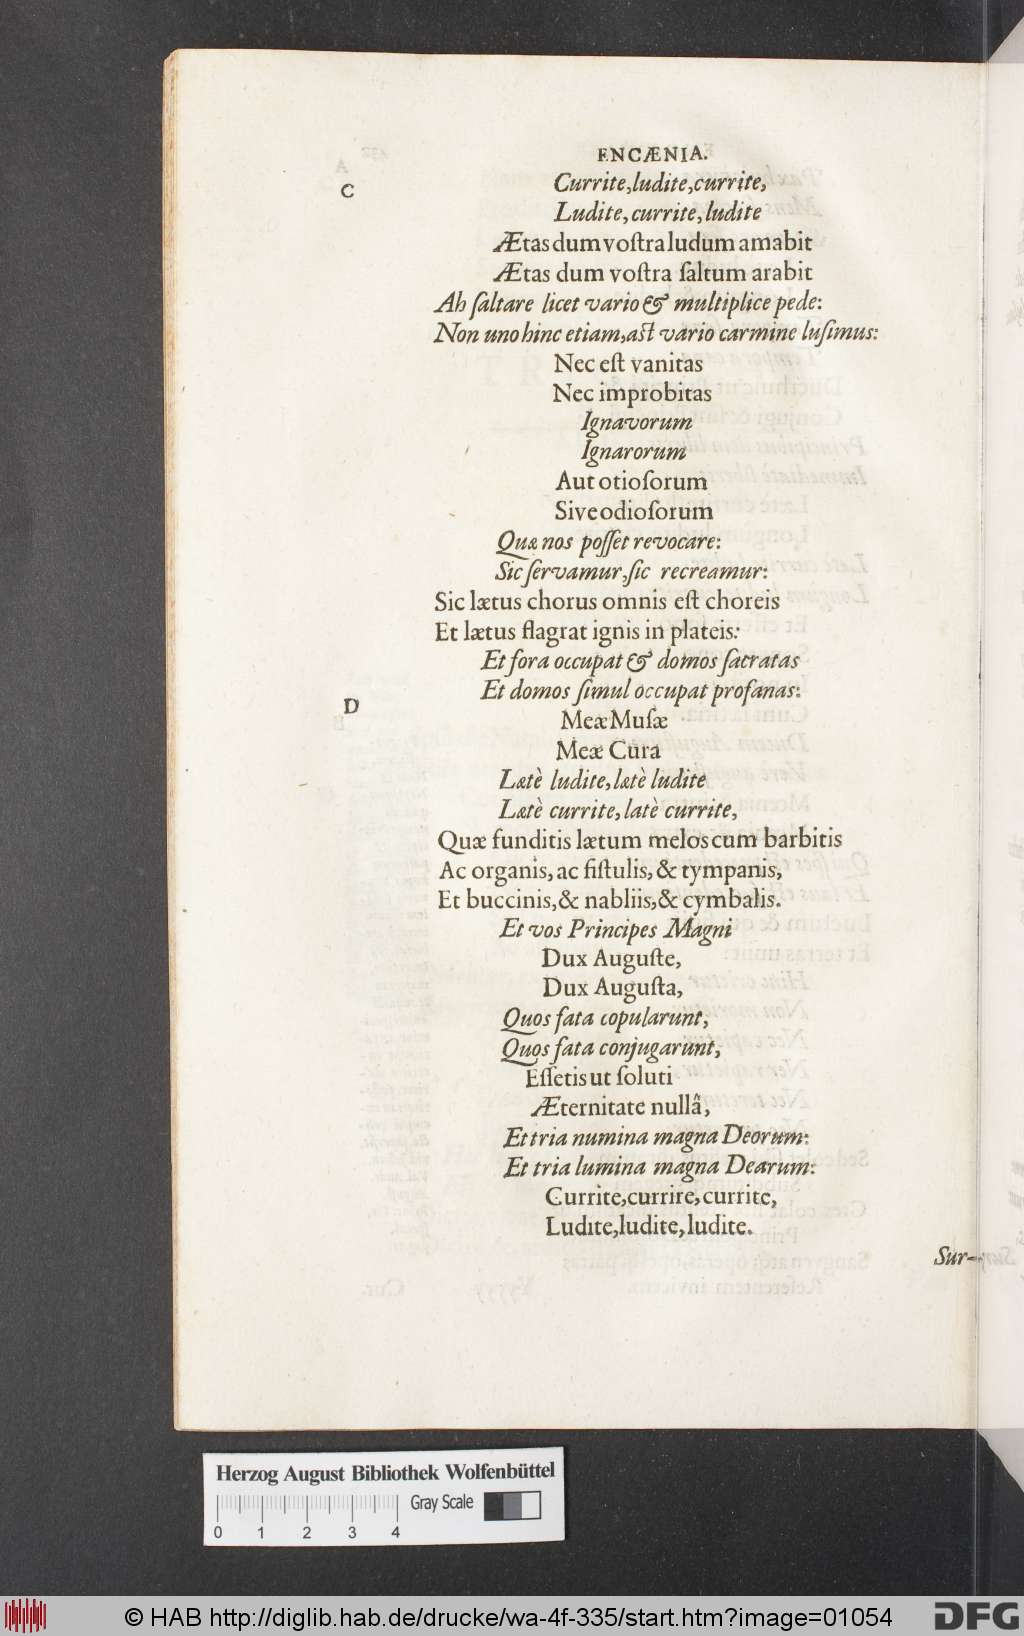 ENCÆNIA.
C
Currite, ludite, currite,
Ludite, currite, ludite
Ætas dum voſtra ludum amabit
Ætas dum voſtra ſaltum arabit
Ah ſaltare licet vario & multiplice pede:
Non uno hinc etiam, aſt vario carmine luſimus:
Nec eſt vanitas
Nec improbitas
Ignavorum
Ignarorum
Aut otioſorum
Sive odioſorum
Quæ nos poſſet revocare:
Sic ſervamur, ſic recreamur:
Sic lætus chorus omnis eſt choreis
Et lætus flagrat ignis in plateis:
Et fora occupat & domos ſacratas
Et domos ſimul occupat profanas:
D
Meæ Muſæ
Meæ Cura
Lætè ludite, lætè ludite
Lætè currite, latè currite,
Quæ funditis lætum melos cum barbitis
Ac organis, ac fiſtulis, & tympanis,
Et buccinis, & nabliis, & cymbalis.
Et vos Principes Magni
Dux Auguſte,
Dux Auguſta,
Quos fata copularunt,
Quos fata conjugarunt,
Eſſetis ut ſoluti
Æternitate nullâ,
Et tria numina magna Deorum:
Et tria lumina magna Dearum:
Currite, currire, currite,
Ludite, ludite, ludite.
Sur-
Herzog August Bibliothek Wolfenbüttel
Gray Scale
0 1 2 3 4
© HAB http://diglib.hab.de/drucke/wa-4f-335/start.htm?image=01054
DFG